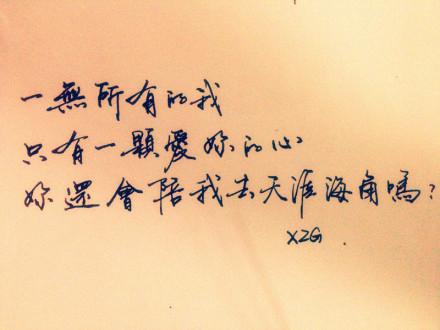 一無所有的我
只有一顆愛妳的心
妳還會陪我去天涯海角嗎?
XZG.